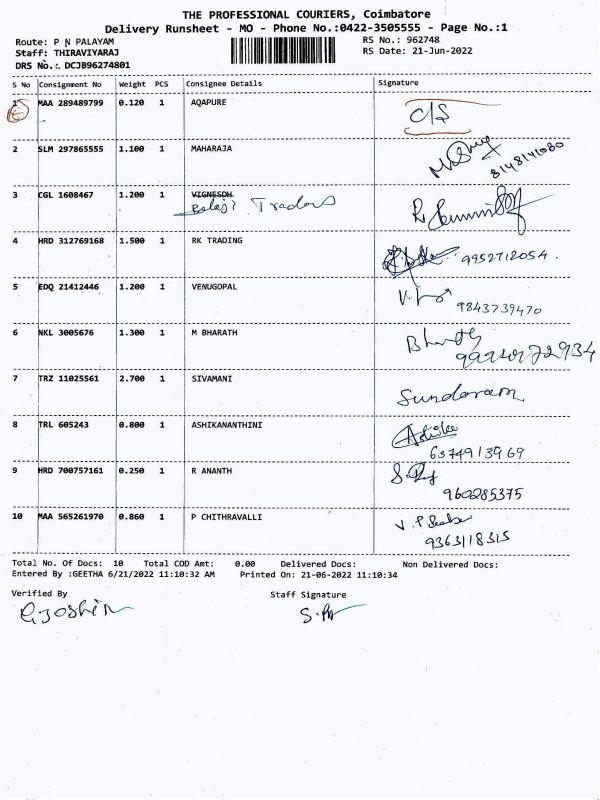 THE PROFESSIONAL COURIERS, Coimbatore
Delivery Runsheet - MO - Phone No.:0422-3505555 - Page No.:1
Route: P N PALAYAM
Staff: THIRAVIYARAJ
DRS No.: DCJB96274801
RS No.: 962748
RS Date: 21-Jun-2022
S No Consignment No Weight PCS Consignee Details Signature
1 MAA 289489799 0.120 1 AQAPURE C/S
2 SLM 297865555 1.100 1 MAHARAJA 8148141080
3 CGL 1608467 1.200 1 VIGNESDH
Balaji Traders
4 HRD 312769168 1.500 1 RK TRADING 9952712054.
5 EDQ 21412446 1.200 1 VENUGOPAL 9843739470
6 NKL 3005676 1.300 1 M BHARATH Bharath
7 TRZ 11025561 2.700 1 SIVAMANI Sundaram
8 TRL 605243 0.800 1 ASHIKANANTHINI Ashika
6374913969
9 HRD 700757161 0.250 1 R ANANTH
960285375
10 MAA 565261970 0.860 1 P CHITHRAVALLI
9363118315
Total No. Of Docs: 10 Total COD Amt: 0.00 Delivered Docs: Non Delivered Docs:
Entered By :GEETHA 6/21/2022 11:10:32 AM Printed On: 21-06-2022 11:10:34
Verified By Staff Signature